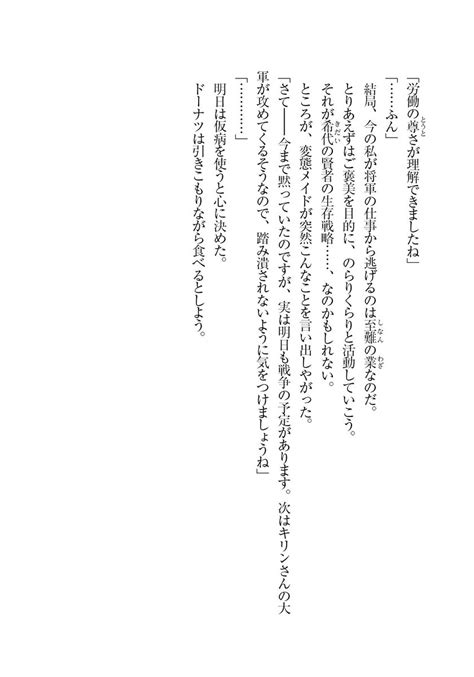 「労働の尊さが理解できましたね」
「……ふん」
結局、今の私が将軍の仕事から逃げるのは至難の業なのだ。
とりあえずはご褒美を目的に、のらりくらりと活動していこう。
それが希代の賢者の生存戦略……、なのかもしれない。
ところが、変態メイドが突然こんなことを言い出しやがった。
「さて――今まで黙っていたのですが、実は明日も戦争の予定があります。次はキリンさんの大
軍が攻めてくるそうなので、踏み潰されないように気をつけましょうね」
「…………」
明日は仮病を使うと心に決めた。
ドーナツは引きこもりながら食べるとしよう。